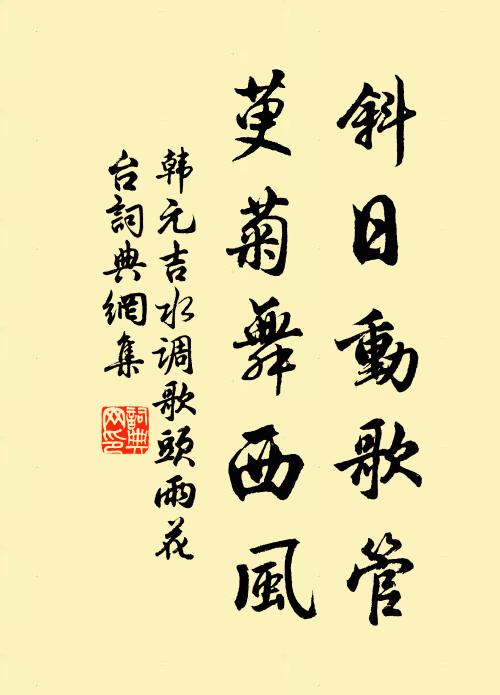 斜日動歌管
萸菊舞西風
韩元吉水调歌頭雨花
台詞典網集
詞典
网印